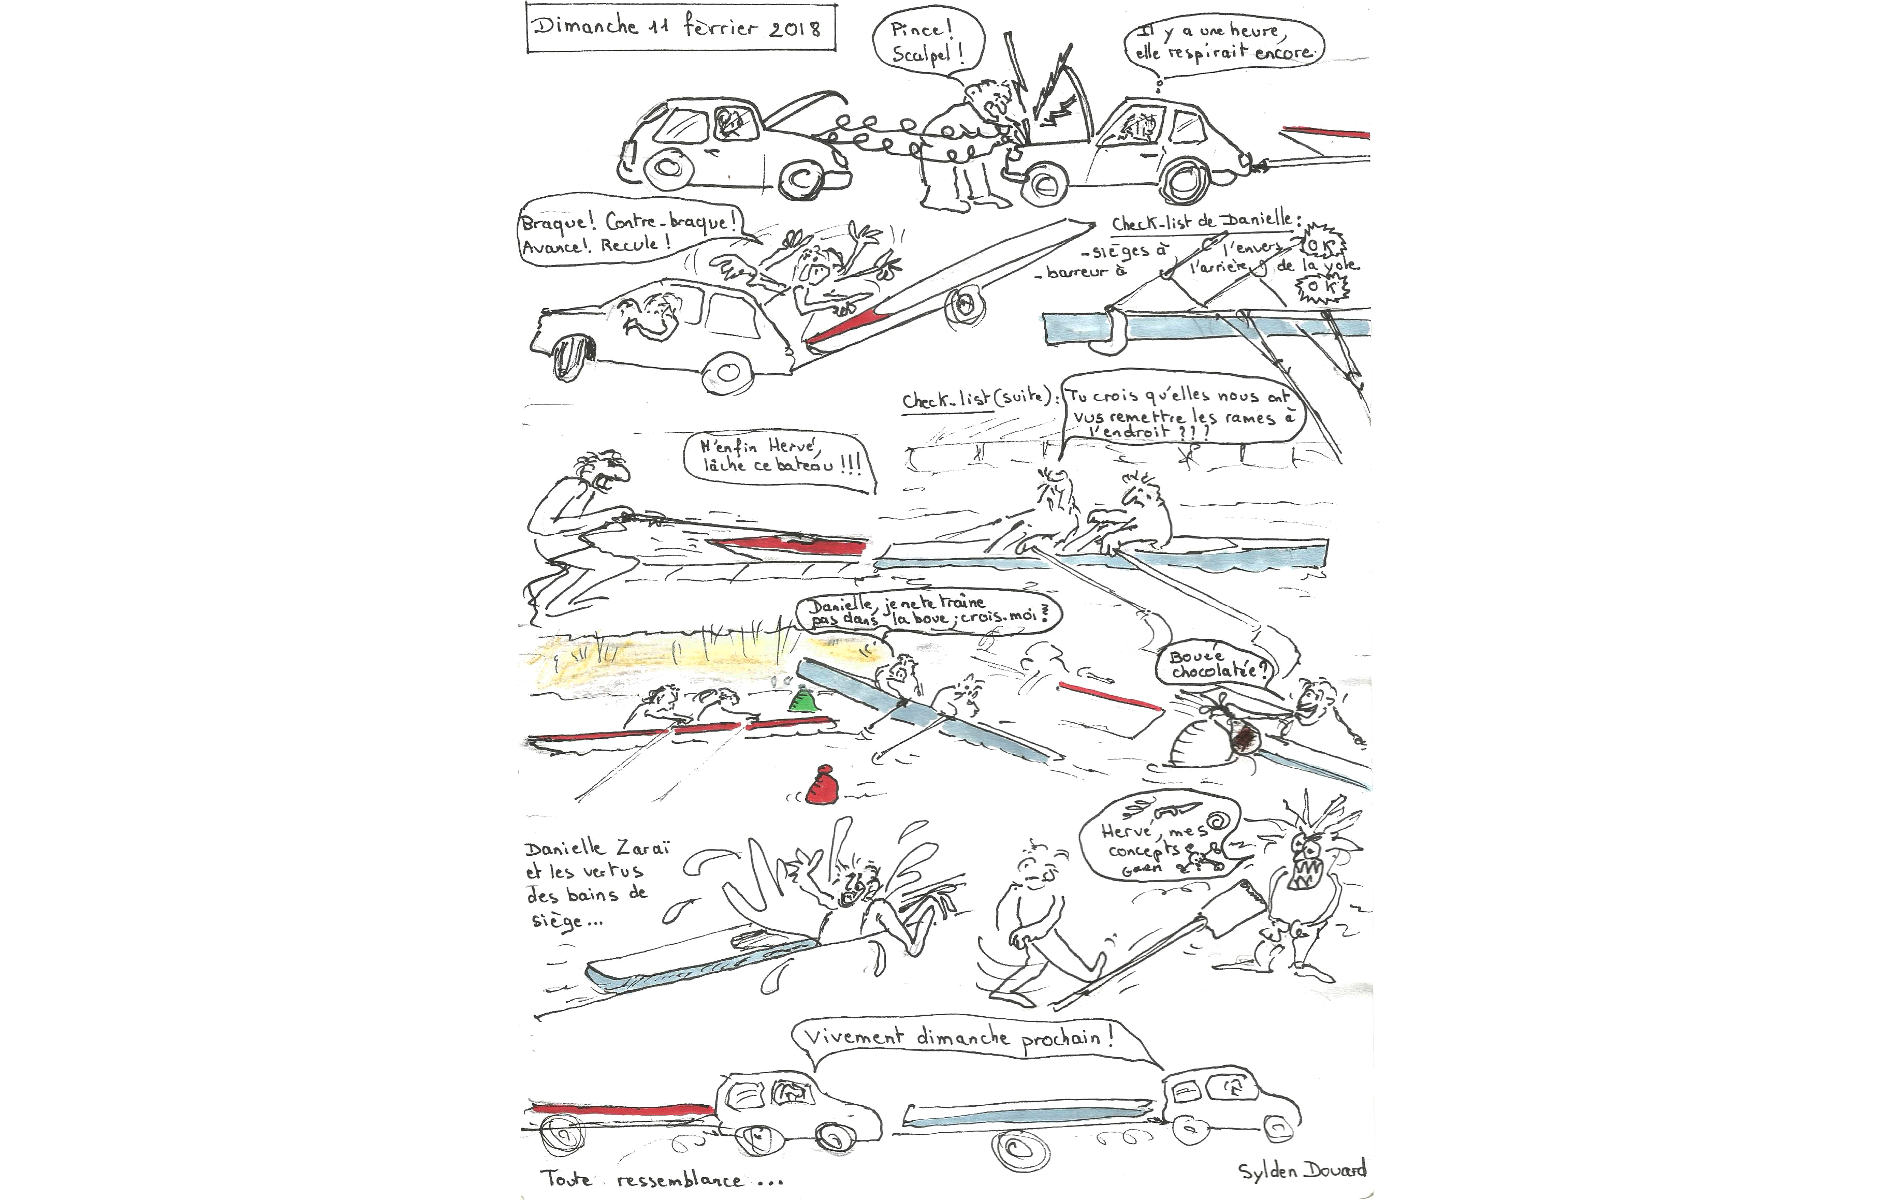 Dimanche 11 fèvrier 2018
Pince!
Scalpel!
Il y a une heure,
elle respirait encore.
Braque! Contre-braque!
Avance! Recule!
Check-list de Danielle:
-sièges à l'envers OK
-barreur à l'arrière de la yole
OK
Check-list (suite):
Tu crois qu'elles nous ont
vus remettre les rames à
l'endroit???
M'enfin Hervé,
lâche ce bateau!!!
Danielle, je ne te traîne
pas dans la boue; crois-moi!
Bouée
chocolatée?
Danielle Zaraï
et les vertus
des bains de
siège...
Hervé, mes
concepts
Vivement dimanche prochain!
Toute ressemblance...
Sylden Douard